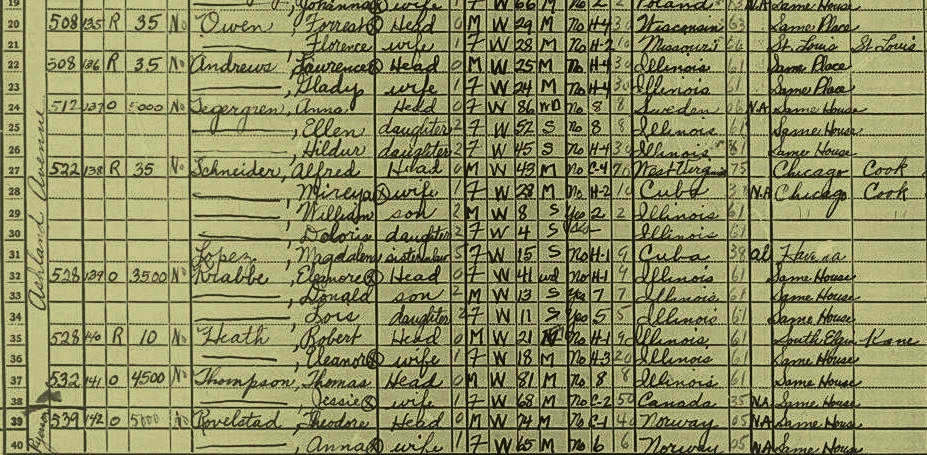 19 , Johanna wife 1 7 W 66 M No 2 2 Poland NA Same House
20 508 135 R 35 No Owen, Forrest Head 0 M W 29 M No H-4 30 Wisconsin 63 Same Place
21 , Florence wife 1 7 W 28 M No H-2 10 Missouri 66 St. Louis St. Louis
22 508 136 R 35 No Andrews, Lawrence Head 0 M W 25 M No H-4 30 Illinois 61 Same Place
23 , Glady wife 1 7 W 24 M No H-4 30 Illinois 61 Same Place
24 512 137 O 5000 No Segergren, Anna Head 0 7 W 86 wd No 8 8 Sweden 06 NA Same House
25 , Ellen daughter 2 7 W 52 S No 8 8 Illinois 61 Same House
26 , Hildur daughter 2 7 W 45 S No H-4 30 Illinois 61 Same House
27 522 138 R 35 No Schneider, Alfred Head 0 M W 43 M No C-4 70 West Virginia 75 Chicago Cook
28 , Mireya wife 1 7 W 28 M No H-2 10 Cuba NA Chicago Cook
29 , William son 2 M W 8 S Yes 2 2 Illinois 61 " "
30 , Doloris daughter 2 7 W 4 S Illinois 61
31 Lopez, Magdalena sister in law 5 7 W 15 S No H-1 9 Cuba 39 al Havana
32 528 139 O 3500 No Krabbe, Eleanore Head 0 7 W 41 wd No H-1 9 Illinois 61 Same House
33 , Donald son 2 M W 13 S Yes 7 7 Illinois 61 Same House
34 , Lois daughter 2 7 W 11 S Yes 5 5 Illinois 61 Same House
35 528 140 R 10 No Heath, Robert Head 0 M W 21 M No H-1 9 Illinois 61 South Elgin Kane
36 , Eleanor wife 1 7 W 18 M No H-3 20 Illinois 61 Same House
37 532 141 O 4500 No Thompson, Thomas Head 0 M W 81 M No 8 8 Illinois 61 Same House
38 , Jessie wife 1 7 W 68 M No C-2 50 Canada 35 NA Same House
39 539 142 O 5000 No Rovelstad, Theodore Head 0 M W 74 M No C-1 40 Norway 05 NA Same House
40 , Anna wife 1 7 W 65 M No 6 6 Norway 05 NA Same House
Ashland Avenue